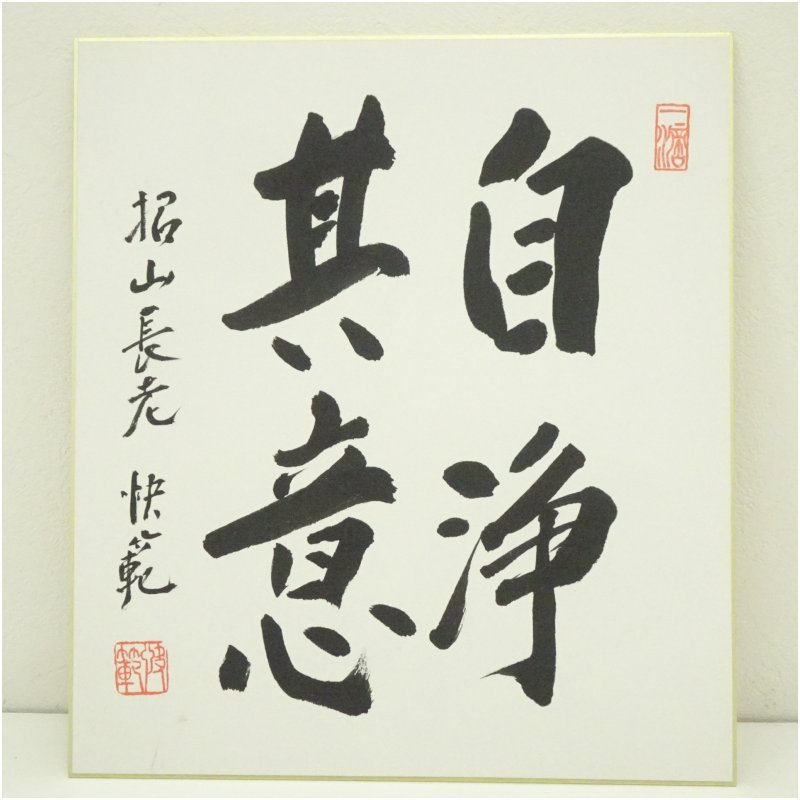 自浄
其意
招山長老 快範